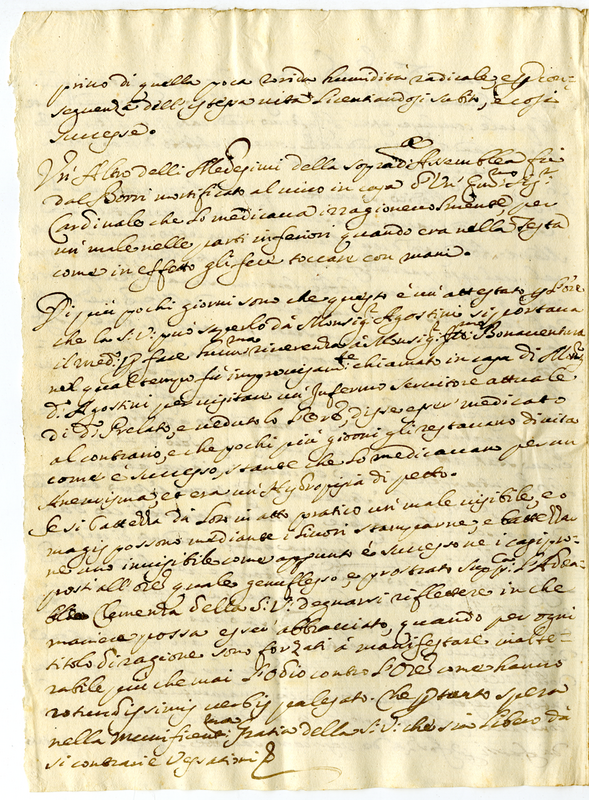 primo di quella poca torida humidità radicale, e p con-
seguenza dell'istessa vita licentiandosi subito, e così
successe.
Un' Altro delli Medesimi della sopradᵃ Assemblea fù
dal Borri mortificato al vivo in casa d'Un' Emᵐᵒ Sigʳ
Cardinale che lo medicava irragionevolmente, per
un male nelle parti inferiori quando era nella Testa
come in effetto gli fece toccare con mani.
Di più pochi giorni sono che questo è un' attestato p l'Orē
che la S.V. può saperlo dà Monsigʳ Agostini si portava
il medᵒ p fare humᵐᵃ riverenza à Monsigʳ Bonaventura
nel qual tempo fù improvisamᵗᵉ chiamato in casa di Monsʳ
dᵒ Agostini per visitar un' Infermo servitore attuale
di dᵒ Prelato, e vedutolo l'Orē, disse esser medicato
al contrario, e che pochi più giorni gli restavano di vita
come è successo, stante che lo medicavan per un
Aneurisma, et era un' Hydropisia di petto.
Se si batteda loro in atto pratico un' male visibile, e o
magis possono mediante i livori stamparne, e
ne uno invisibile come appunto è successo ne i casi sup-
posti all'Orē, quale genuflesso, e prostrato suppᶜᵃ l'Aden-
Clemenza della S.V. degnarsi riflettere in che
maniera possa esser abbracciato, quando per ogni
titolo di ragione sono forzati à manifestare inalte-
rabile più che mai l'Odio contro l'Orē come hanno
rotundissimis verbis palesato. Che p tanto spera
nella munificentᵐᵃ Gratia della S.V. che sia libero dà
si contrarie Vessationi